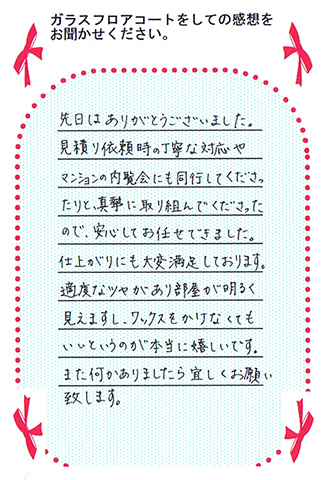 ガラスフロアコートをしての感想を
お聞かせください。
先日はありがとうございました。
見積り依頼時の丁寧な対応や
マンションの内覧会にも同行してくださっ
たりと、真摯に取り組んでくださった
ので、安心してお任せできました。
仕上がりにも大変満足しております。
適度なツヤがあり部屋が明るく
見えますし、ワックスをかけなくても
いいというのが本当に嬉しいです。
また何かありましたら宜しくお願い
致します。